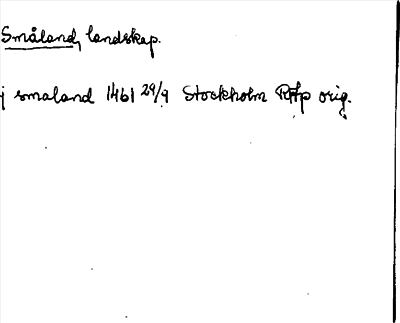 Småland, landskap.
j smaland 1461 29/9 Stockholm RAp orig.